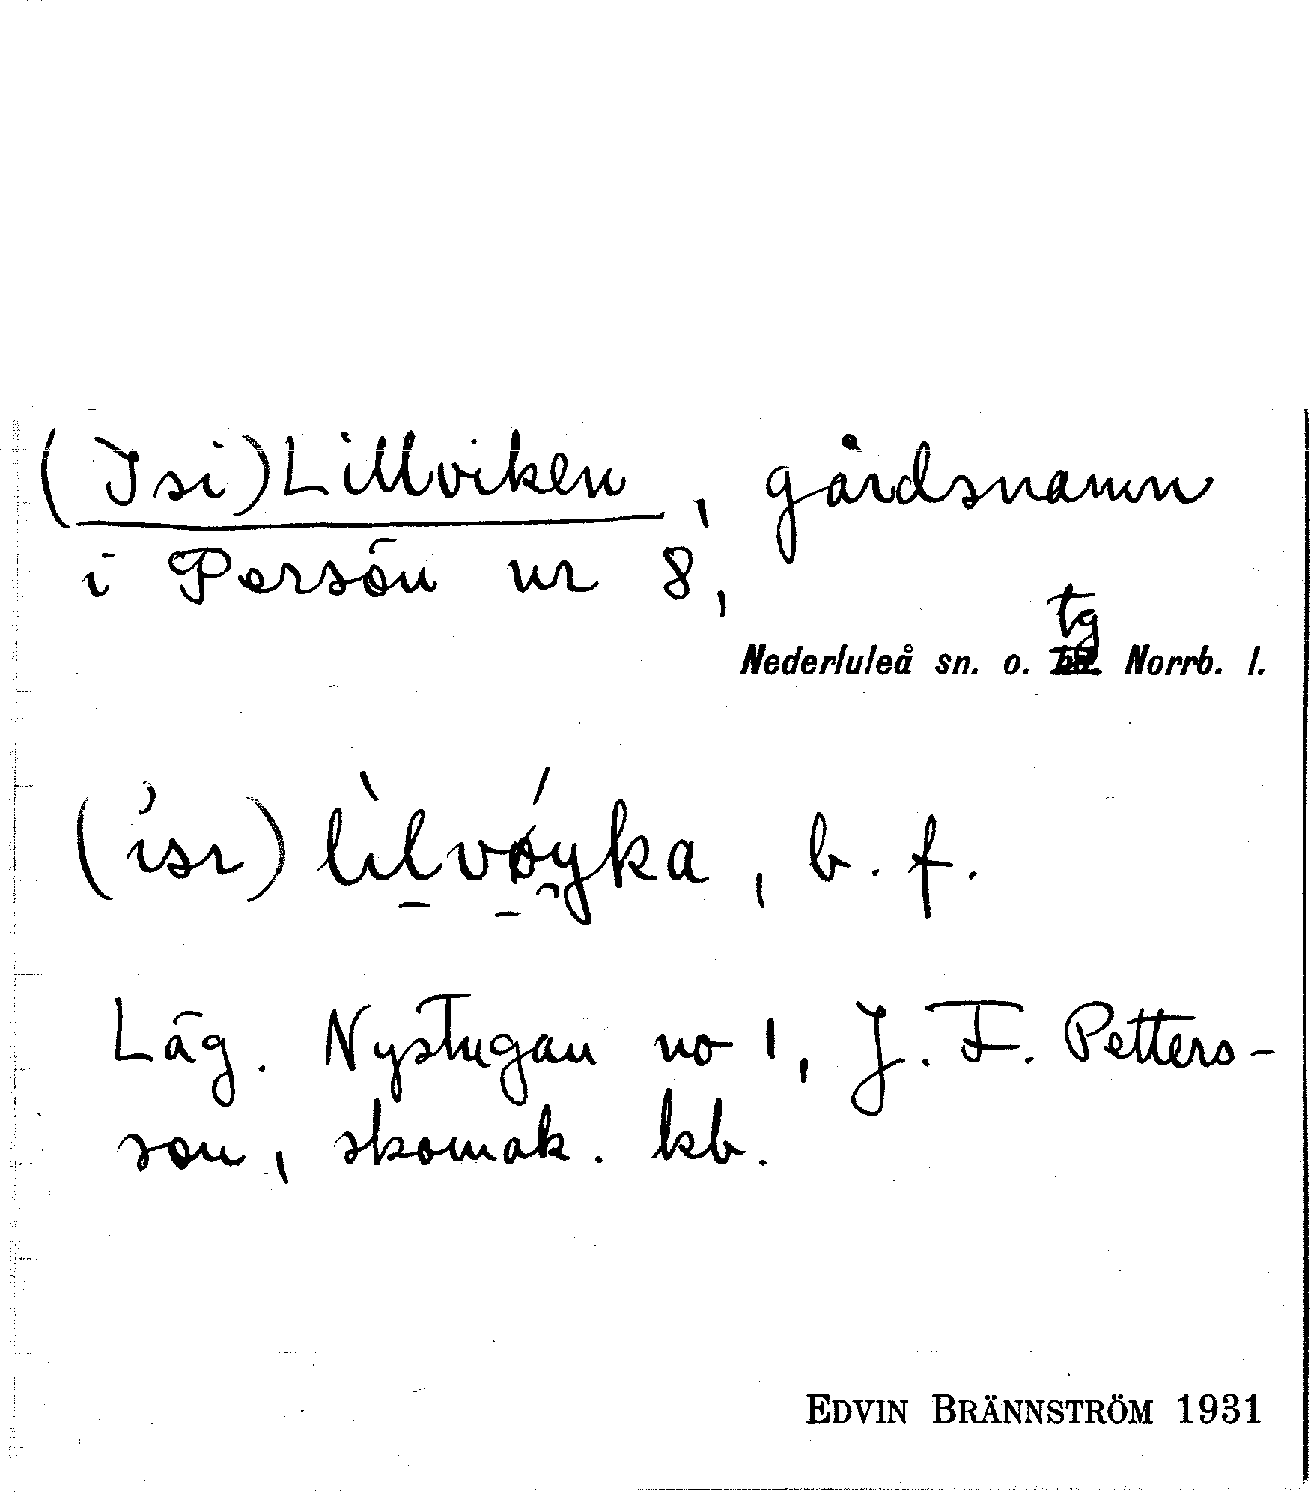 (Isi)Lillviken, gårdsnamn
i Persön nr 8,
tg
Nederluleå sn. o. Norrb. l.
(ísı) lìlvǿyka, b. f.
Läg. Nystugan no 1, J. F. Petters-
son, skomak. kb.
EDVIN BRÄNNSTRÖM 1931